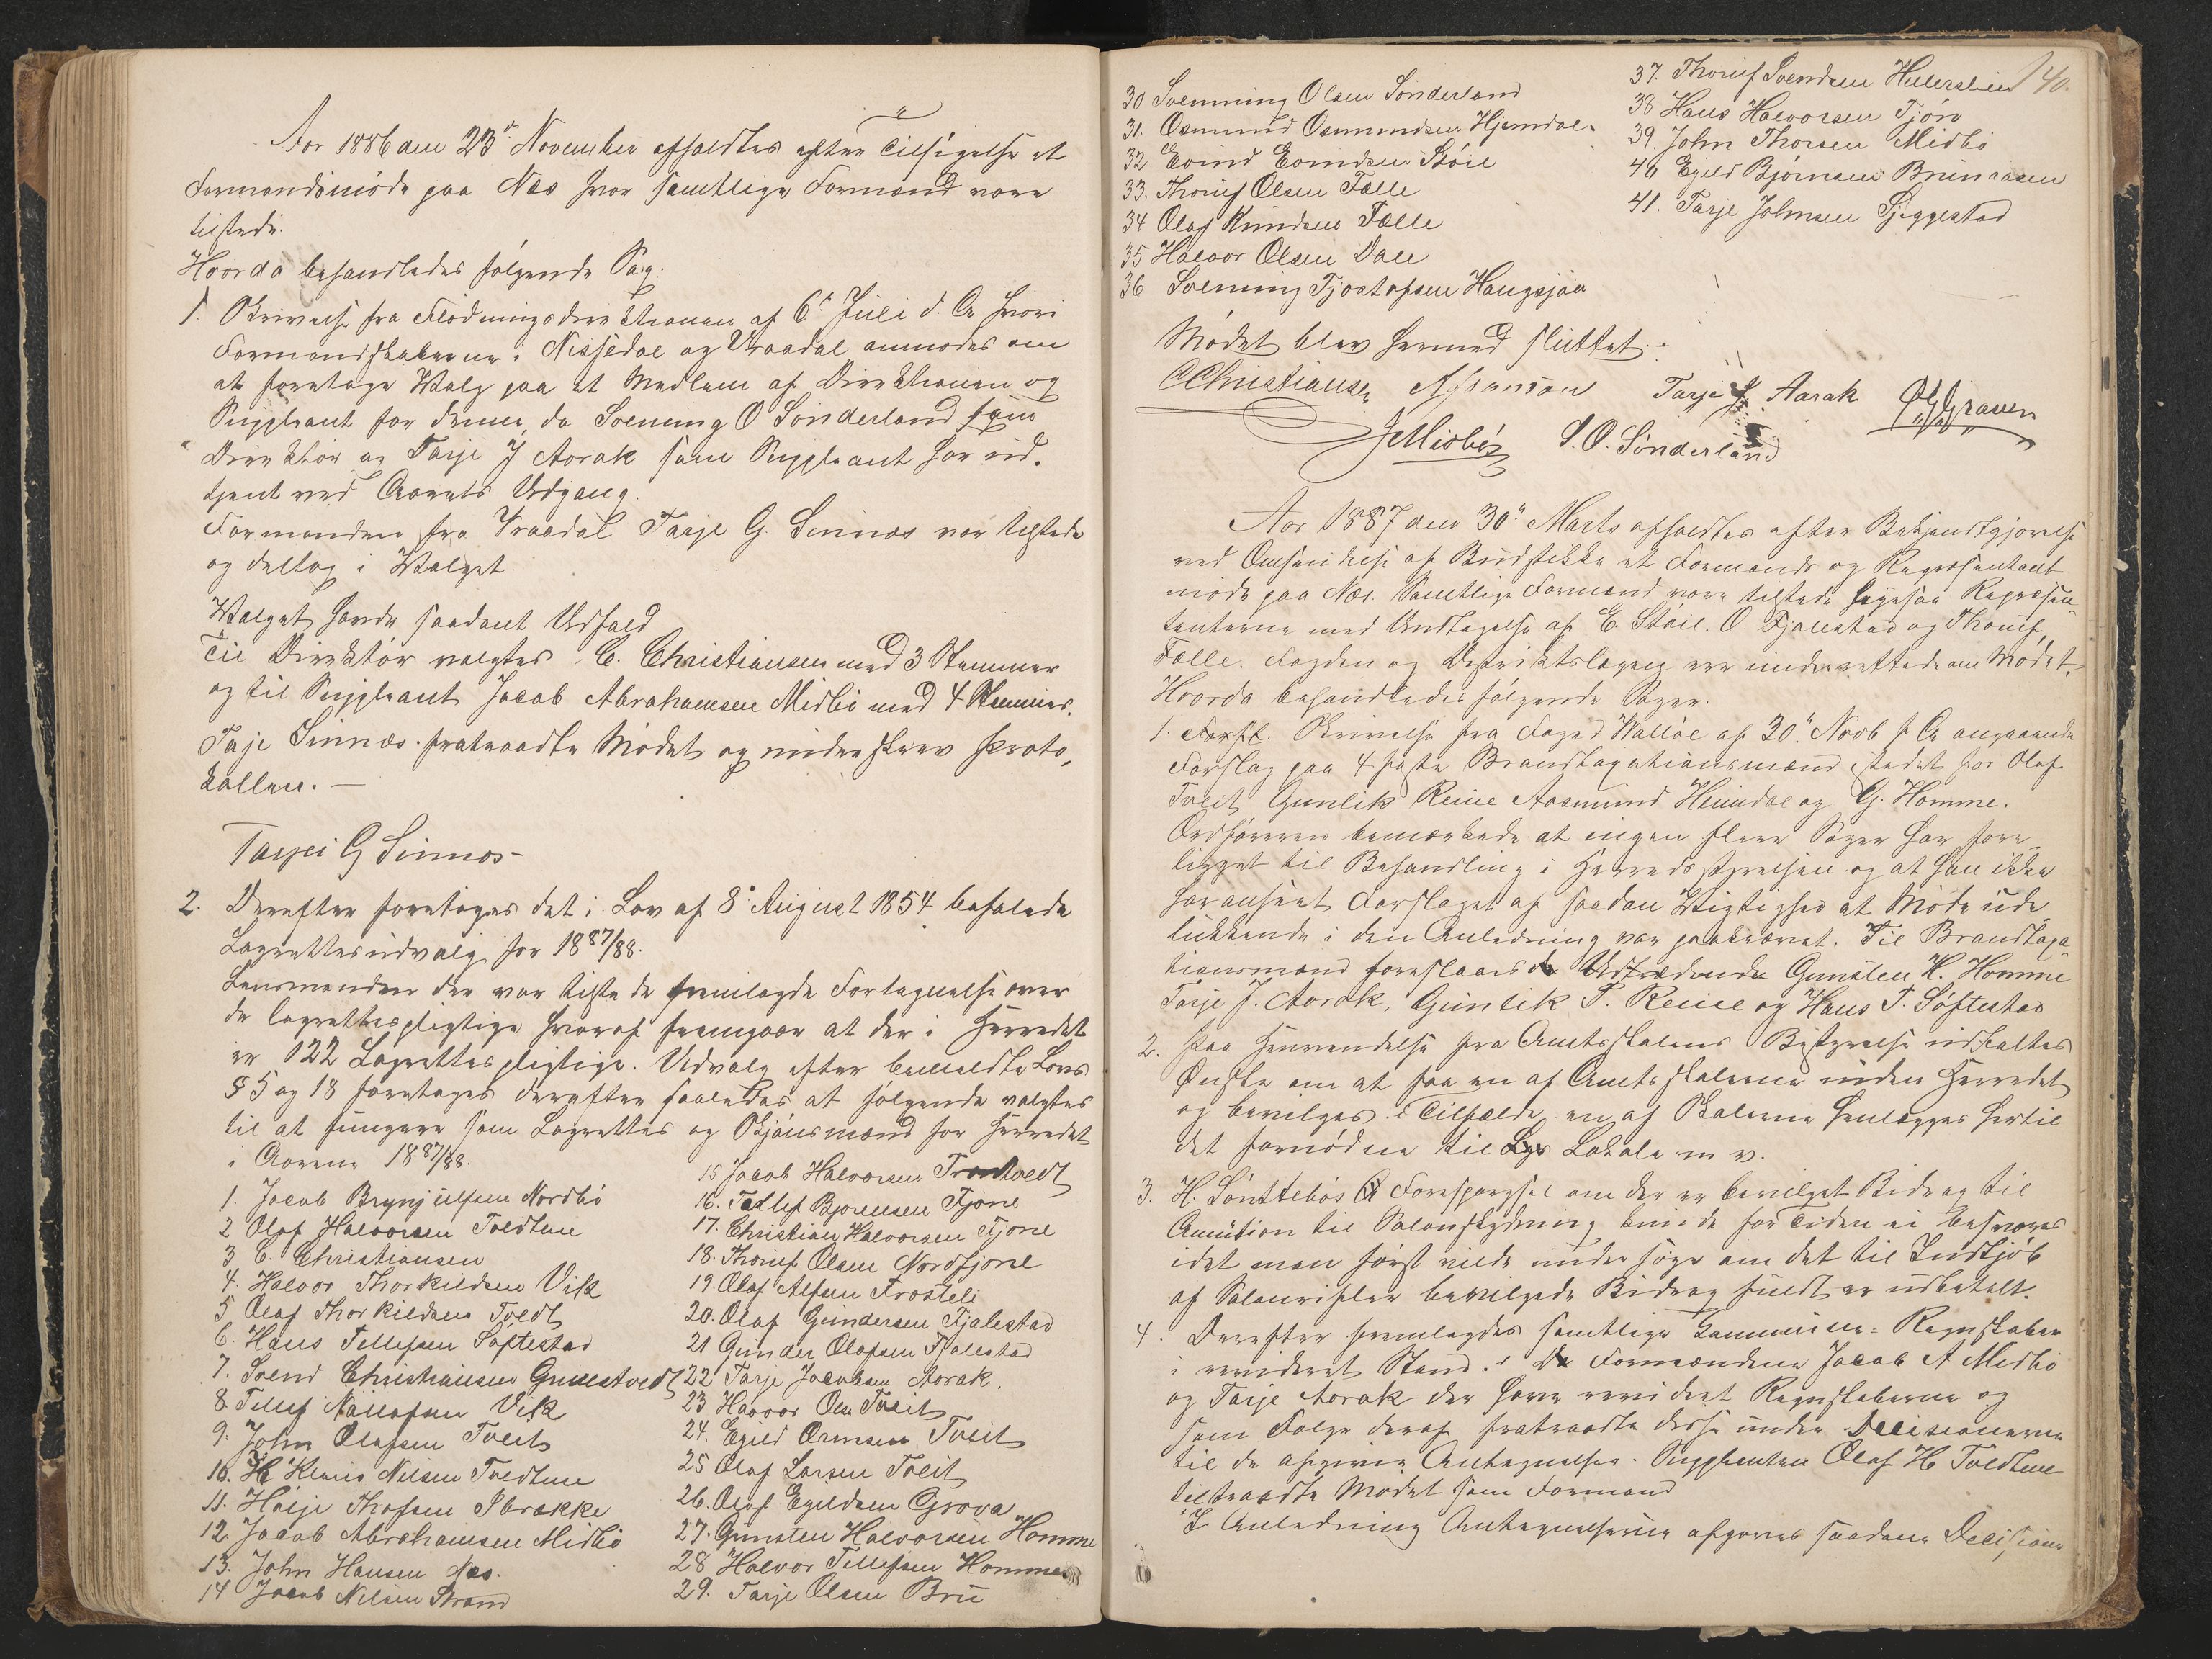 Aar 1886 den 23de November afholdtes efter Tilsigelse et
Formandsmöde paa Næs hvor samtlige Formænd vare
tilstede.
Hvorda behandledes følgende Sag:
1. Skrivelse fra Flödningsdirektionen af 6te Juli d. A. hvori
Formandskaberne i Nissedal og Vraadal anmodes om
at foretage Valg paa et Medlem af Direktionen og
Suppleant for denne, da Svenung O Sönderland som
Direktör og Tarje J Aarak som Suppleant har ud-
tjent ved Aarets Udgang.
Formanden fra Vraadal Tarje G. Sinnæs var tilstede
og deltog i Valget.
Valget havde saadant Udfald
Til Direktör valgtes C. Christiansen med 3 Stemmer
og til Suppleant Jacob Abrahamsen Midbö med 4 Stemmer.
Taje Sinnæs fratraadte Mödet og underskrev Proto-
kollen. —
Tarjei G Sinnos
2. Derefter foretoges det i Lov af 8de August 1854 befalede
Lagrettesudvalg for 1887/88.
Lensmanden der var tilstede fremlagde Fortegnelse over
de lagrettespligtige hvoraf fremgaar at der i Herredet
er 122 Lagrettespligtige. Udvalg efter bemeldte Lovs
§ 5 og 18 foretoges derefter saaledes at følgende valgtes
til at fungere som Lagrettes og Skjönsmænd for Herredet
i Aarene 1887/88.
1. Jacob Brynjulfsen Nordbö
2 Olaf Halvorsen Tvedtene
3 C. Christiansen
4. Halvor Thorkildsen Vik
5 Olaf Thorkildsen Tvedt
6. Hans Tellefsen Söftestad
7. Svend Christiansen Grimstvedt
8 Tellef Nællafsen Vik
9. John Olafsen Tveit
10. Klaus Nilsen Tvedtene
11. Hölje Thofsen Sbrække
12 Jacob Abrahamsen Midbö
13. John Hansen Næs.
14 Jacob Nilsen Strand
15 Jacob Halvorsen Trontvedt
16. Tallef Bjornsen Fjone
17. Christian Halvorsen Fjone
18. Thorief Olsen Nordfjone
19. Olaf Alfsen Frosteli
20. Olaf Gundersen Fjalestad
21 Gunder Olafsen Fjalestad
22 Tarje Jacobsen Aarak.
23 Halvor Olsen Tveit
24. Egild Ormsen Tveit
25 Olaf Larsen Tveit
26. Olaf Egildsen Grova
27. Gunsten Halvorsen Homme
28 Halvor Tellefsen Homme
29. Tarje Olsen Bru
140.
30 Svenning Olsen Sönderland
31. Osmund Osmundsen Hjemdal
32 Evind Evindsen Stöil
33. Thorief Olsen Fælle
34 Olaf Knudsen Fælle
35 Halvor Olsen Dale
36 Svenung Tjostofsen Haugsjaa
37. Thorief Svendsen Hellersli
38 Hans Halvorsen Tjörn
39. John Thorsen Midbö
40 Egild Björnsen Brunaasen
41. Tarje Johnsen Sjeggestad
Mödet blev hermed sluttet.
CChristiansen Tarje J. Aarak O. Graven
JMidbö S. O. Sönderland
Aar 1887 den 30te Marts afholdtes efter Bekjendtgjörelse
ved Omsendelse af Budstikke et Formands og Repræsentant
möde paa Næs. Samtlige Formænd vare tilstede ligesaa Repræsen-
tanterne med Undtagelse af E. Stöil. O. Fjalestad og Thorief
Fælle. Fogden og Distriktslægen var underrettede om Mödet.
Hvorda behandledes følgende Sager.
1. Skrivelse fra Foged Wallöe af 30te Novb f. A. angaaende
Forslag paa 4 faste Brandtaxationsmænd istedet for Olaf
Tveit, Gunlik Reine Aasmund Heimdal og G. Homme.
Ordföreren bemærkede at ingen flere Sager har fore-
ligget til Behandling i Herredsstyrelsen og at han ikke
har anseet Forslaget af saadan Vigtighed at Möde ude-
lukkende i den Anledning var paakrævet. Til Brandtaxa-
tionsmænd foreslaaes de Udtrædende Gunsten H. Homme
Tarje J. Aarak, Gunlik T. Reine og Hans T. Söftestad
2. Paa Henvendelse fra Amtsskolens Bestyrelse udtaltes
Önske om at faa en af Amtsskolerne inden Herredet
og bevilges i Tilfælde en af Skolerne henlægges hertil
det fornödne til Lys Lokale m v.
3. H. Sönstebös Forespörgsel om der er bevilget Bidrag til
Amution til Salonskydning kunde for Tiden ei besvares
idet man först vilde undersöge om det til Indkjöb
af Salonrifler bevilgede Bidrag fuldt er udbetalt.
4. Derefter fremlagdes samtlige Kommune-Regnskaber
i revideret Stand. De Formændene Jacob A Midbö
og Tarje Aarak der have revideret Regnskaberne og
som Følge deraf fratraadte disse under Decisionerne
til de afgivne Antegnelser. Suppleanten Olaf H Tvedtene
tiltraadte Mödet som Formand
I Anledning Antegnelserne afgaves saadanne Decisioner